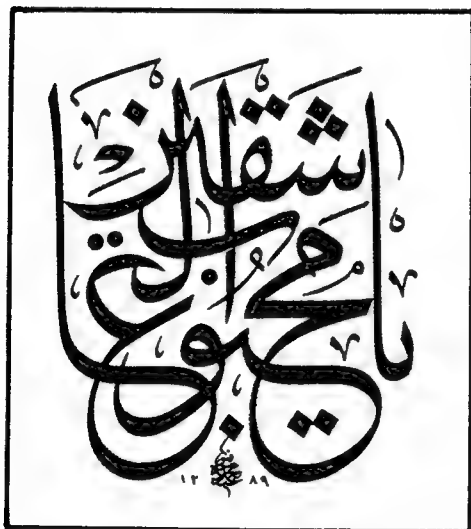 يا محبوب العاشقين
١٢٨٩